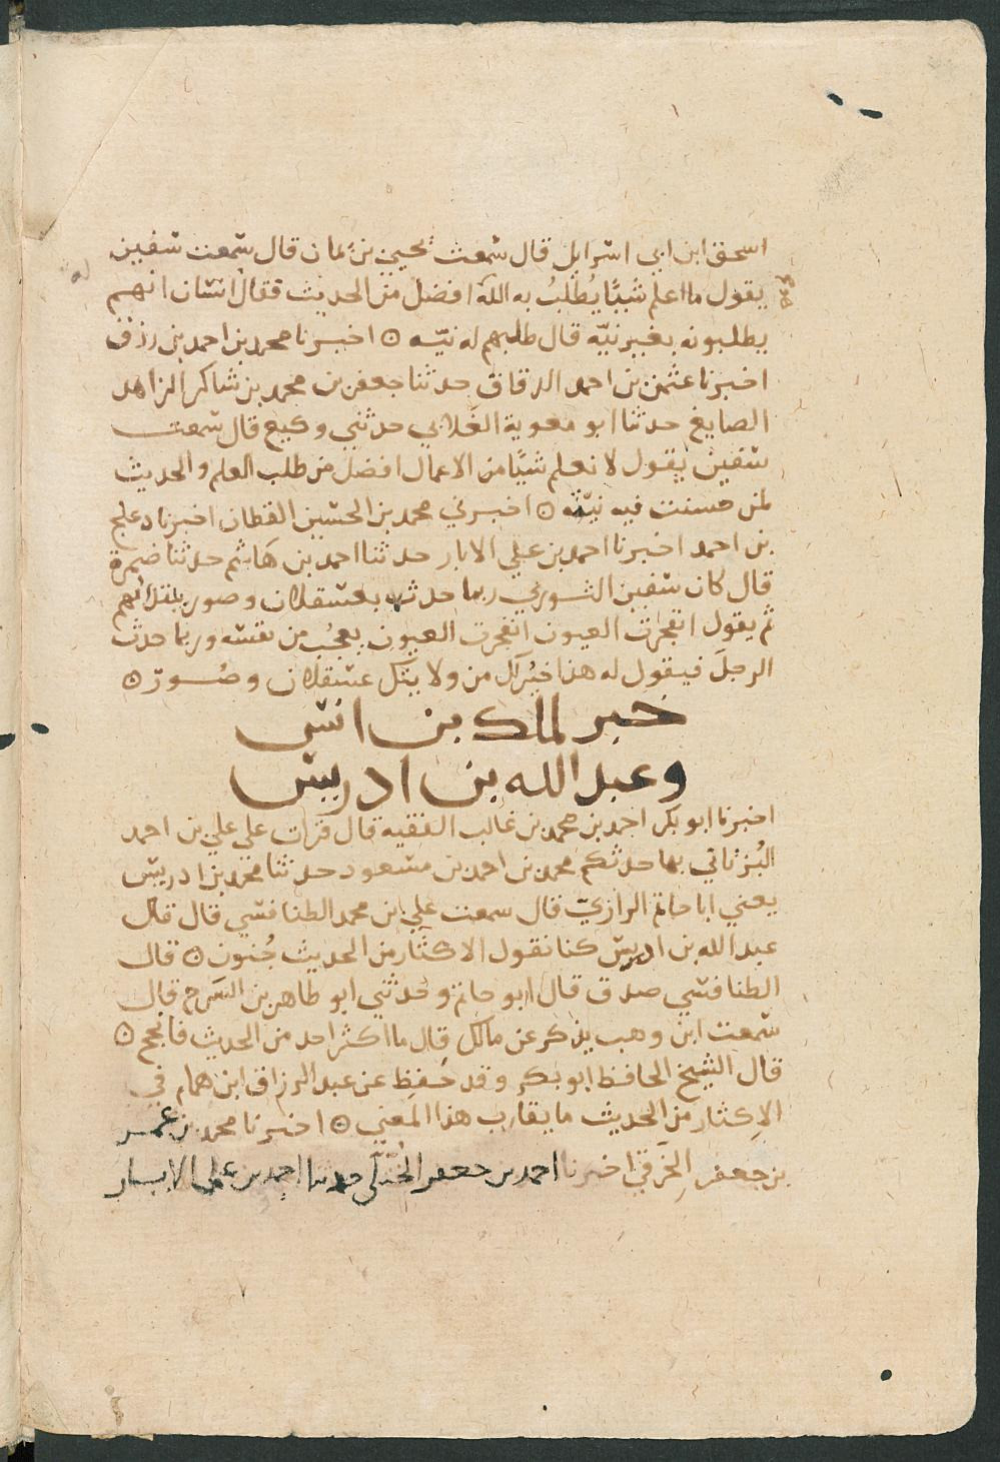 اسحق ابن ابي اسرايل قال سمعت يحيى بن يمان قال سمعت سفين
يقول ما اعلم شيئا يُطلبُ به الله افضل من الحديث فقال انسان انهم
يطلبونه بغير نيّه قال طلبهم له نيّه ۞ اخبرنا محمد بن احمد بن رزق
اخبرنا عثمن بن احمد الدقاق حدثنا جعفر بن محمد بن شاكر الزاهد
الصايغ حدثنا ابو معوية الغَلابي حدثني وكيع قال سمعت
سفين يقول لا نعلم شيًا من الاعمال افضل من طلب العلم والحديث
لمن حسنت فيه نيّته ۞ اخبرني محمد بن الحسين القطان اخبرنا دعلج
بن احمد اخبرنا احمد بن علي الابار حدثنا احمد بن هَاشم حدثنا ضمرة
قال كان سفين الثوري ربما حدث بعسقلان وصور يبتدئهم
ثم يقول انفجرت العيون انفجرت العيون يعجُب من نفسه وربما حدث
الرجلَ فيقول له هذا خيرٌ لك من ولايتك عسقلان وصُور ۞
خبر لملك بن انس
وعبد الله بن ادريس
اخبرنا ابو بكر احمد بن محمد بن غالب الفقيه قال قرات على علي بن احمد
البُزناني بها حدثكم محمد بن احمد بن مسعود حدثنا محمد بن ادريس
يعني ابا حاتم الرازيّ قال سمعت علي ابن محمد الطنافسي قال قال
عبد الله بن ادريس كنا نقول الاكثَار من الحديث جُنون ۞ قال
الطنافسي صدق قال ابو حاتم وحدثني ابو طاهر بن السَرح قال
سمعت ابن وهب يذكر عن مالك قال ما اكثر احد من الحديث فانجح ۞
قال الشيخ الحافظ ابو بكر وقد حُفظ عن عبد الرزاق ابن همام في
الاِكثار من الحديث ما يقارب هذا المعني ۞ اخبرنا محمد بن عمر
بن جعفر الخِرَقي اخبرنا احمد بن جعفر الخُتَّلي حدثنا احمد بن على الابار